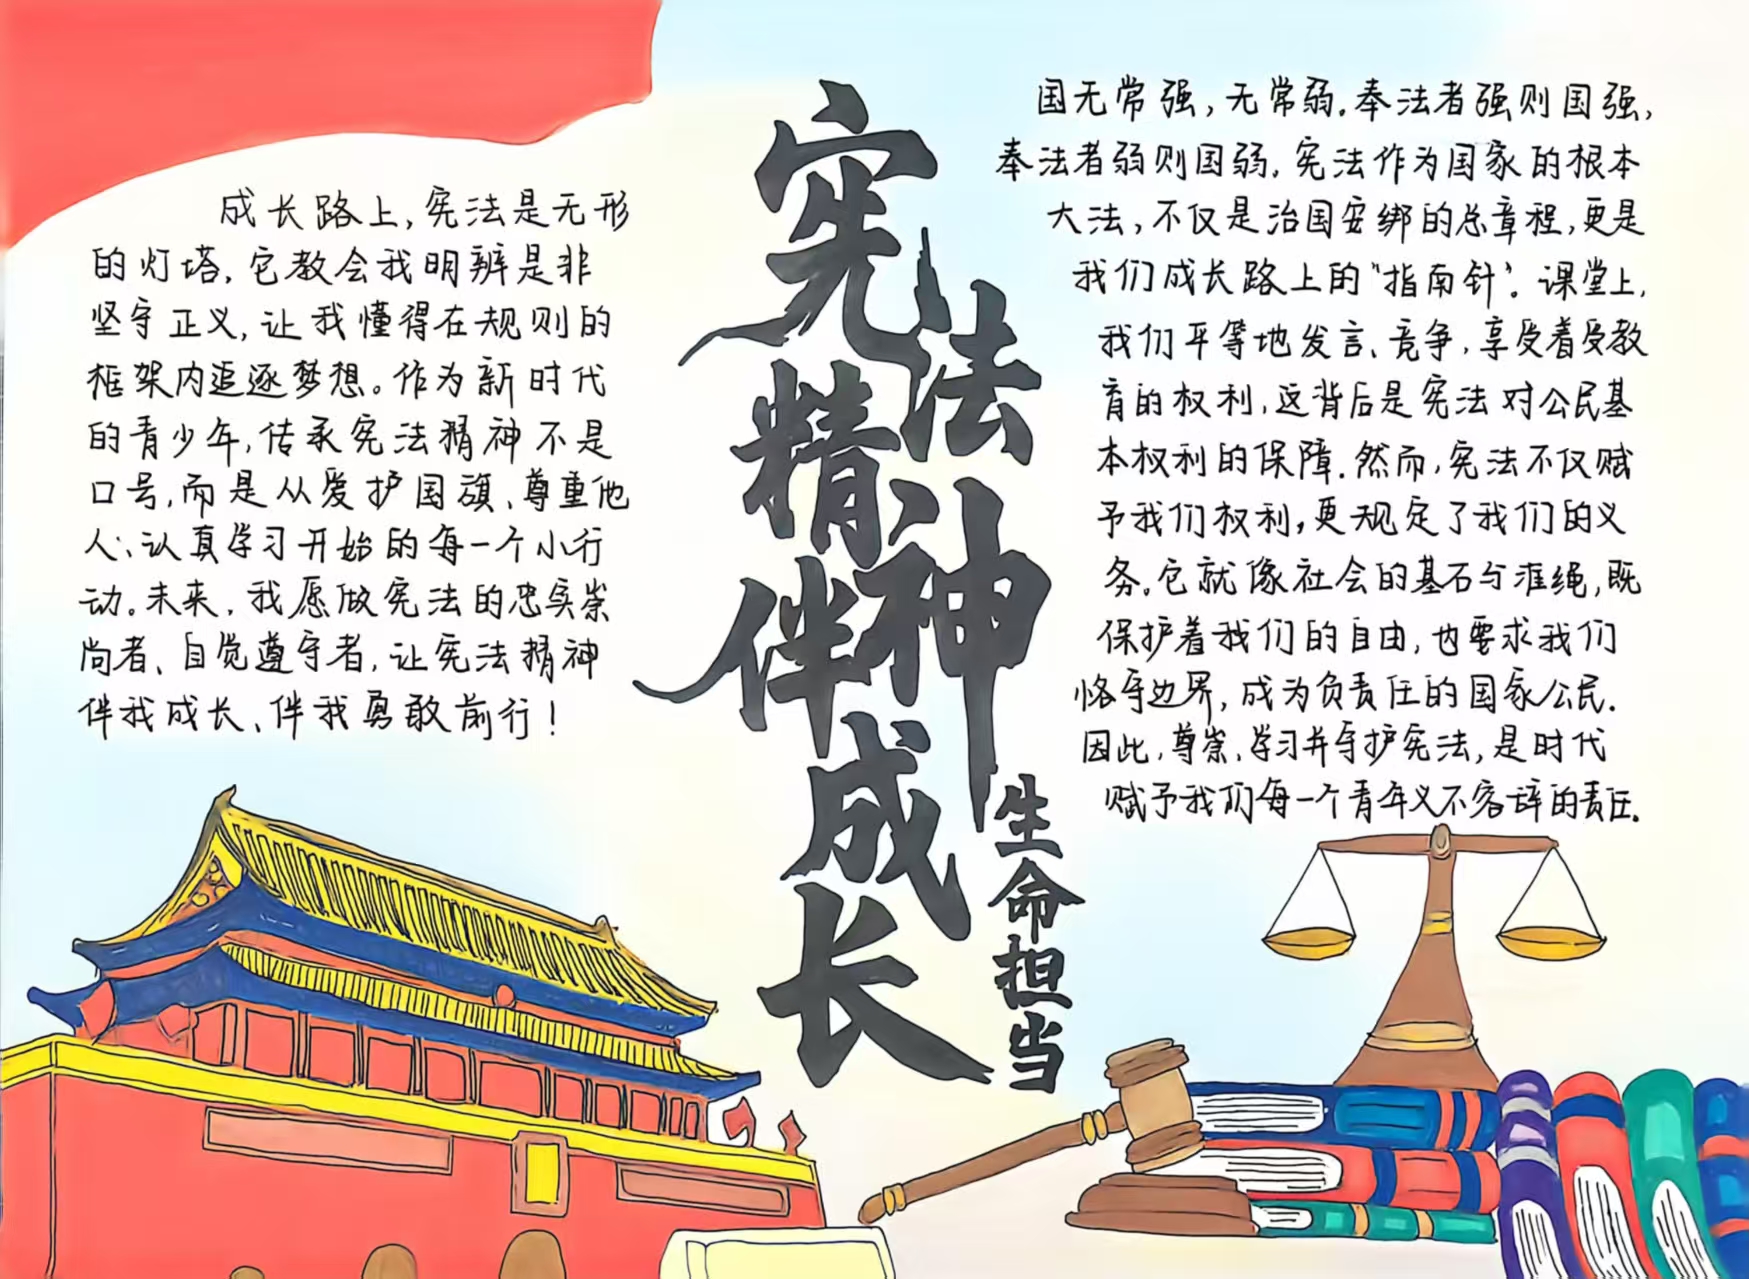 宪法精神伴成长
生命担当
成长路上,宪法是无形
的灯塔,它教会我明辨是非
坚守正义,让我懂得在规则的
框架内追逐梦想。作为新时代
的青少年,传承宪法精神不是
口号,而是从爱护国旗、尊重他
人、认真学习开始的每一个小行
动。未来,我愿做宪法的忠实崇
尚者、自觉遵守者,让宪法精神
伴我成长、伴我勇敢前行!
国无常强,无常弱.奉法者强则国强,
奉法者弱则国弱,宪法作为国家的根本
大法,不仅是治国安绑的总章程,更是
我们成长路上的“指南针”。课堂上,
我们平等地发言、竞争,享受着受教
育的权利,这背后是宪法对公民基
本权利的保障.然而,宪法不仅赋
予我们权利,更规定了我们的义
务。它就像社会的基石与准绳,既
保护着我们的自由,也要求我们
恪守边界,成为负责任的国家公民.
因此,尊崇、学习并守护宪法,是时代
赋予我们每一个青年义不容辞的责任.